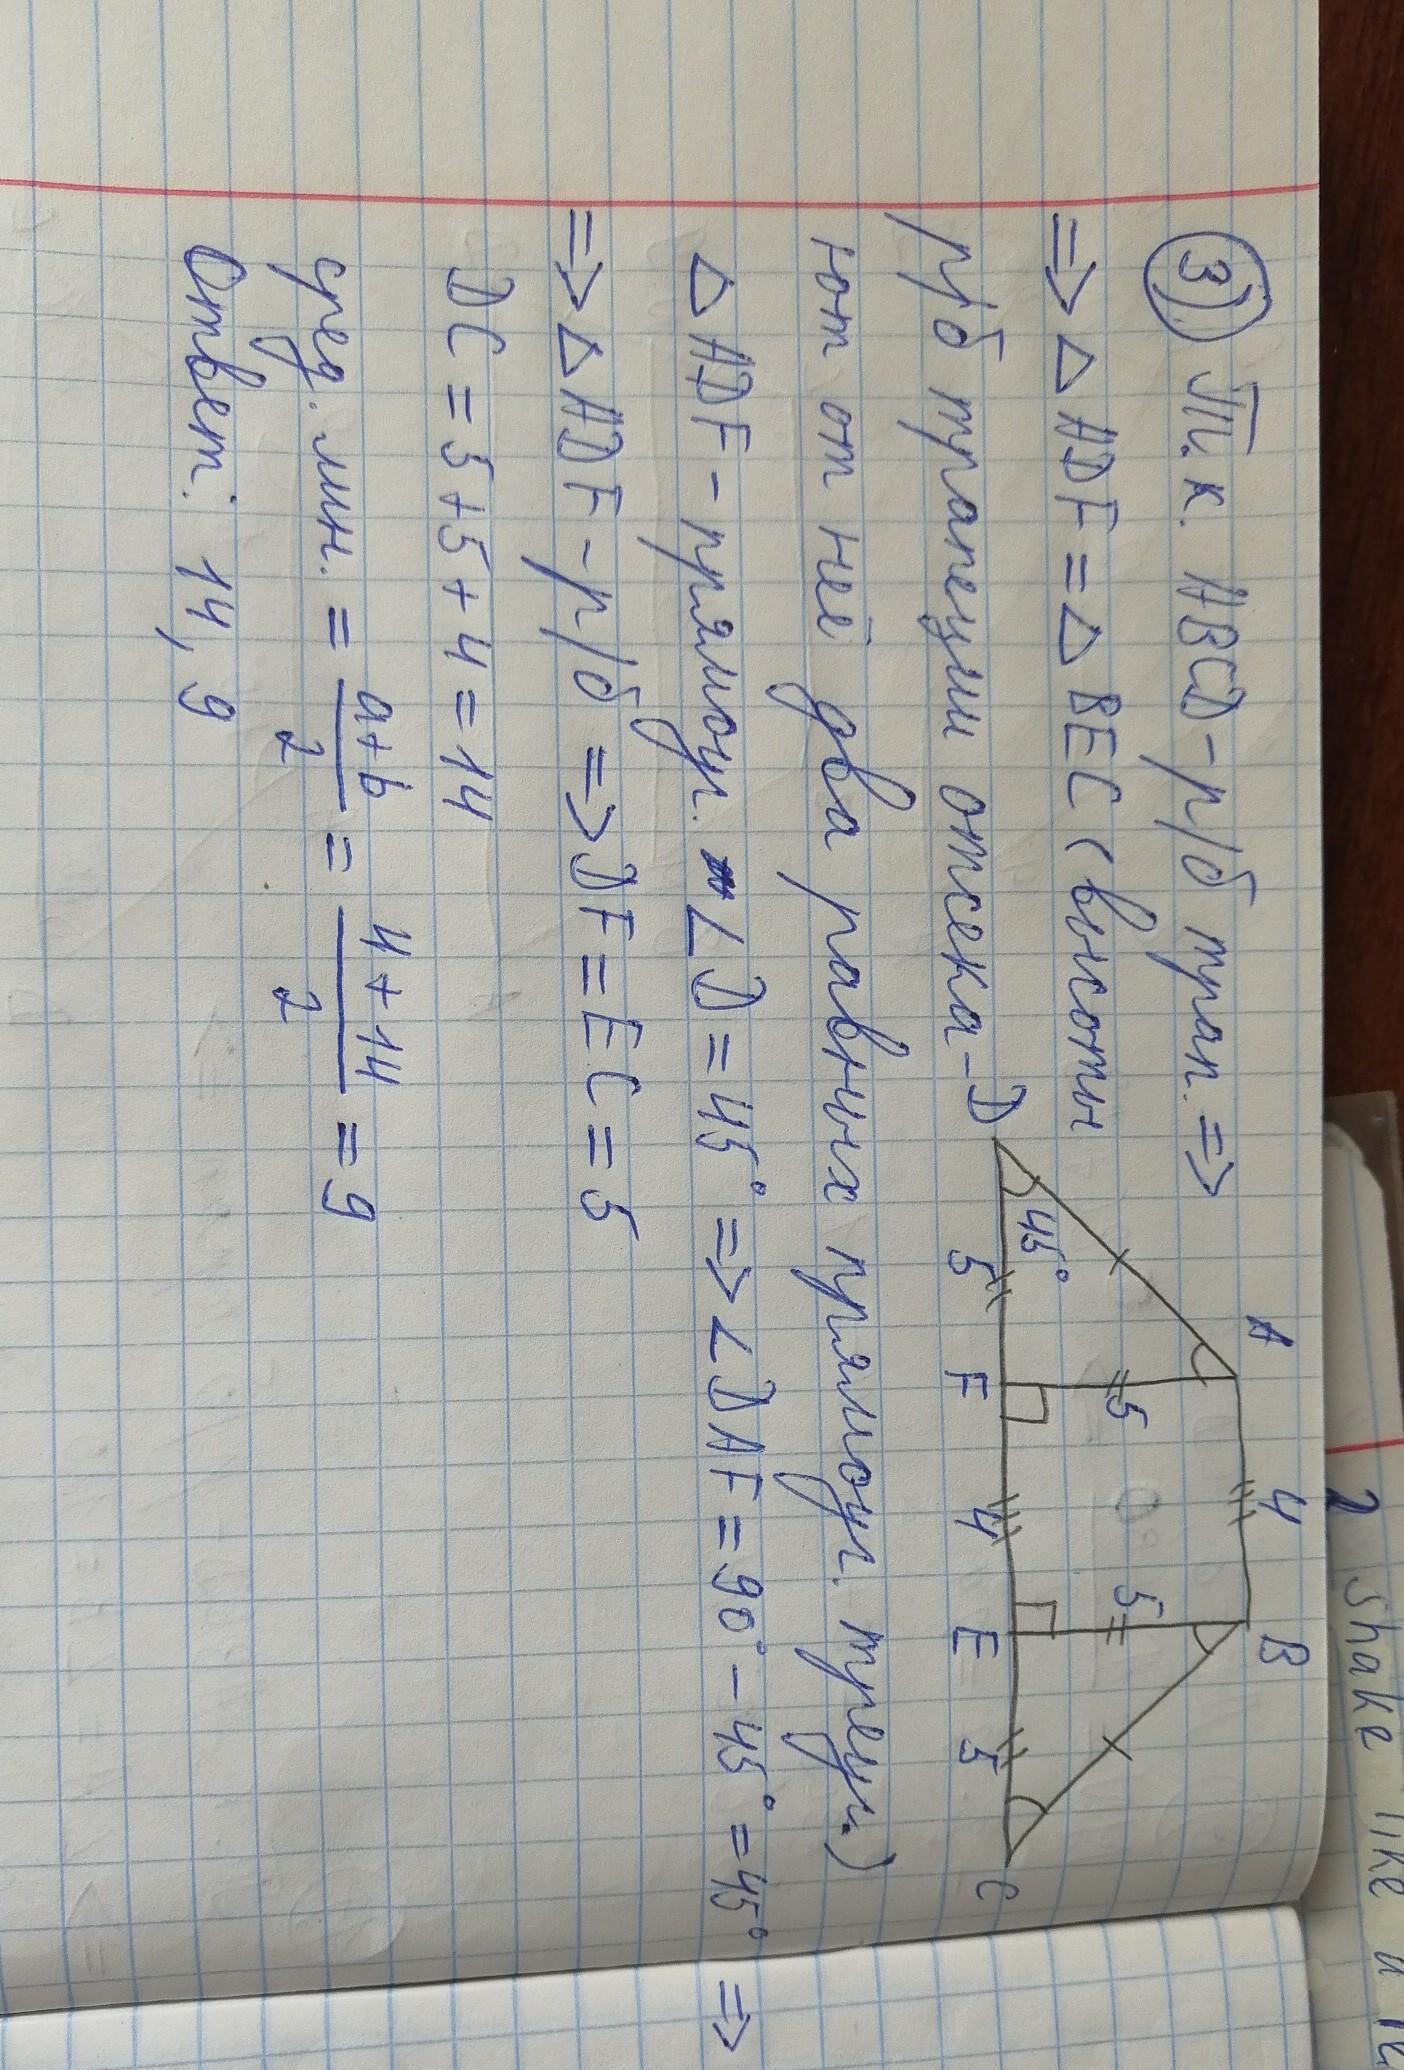 3). Т.к. ABCD - р/б трап. =>
=> △ ADF = △ BEC (высоты
р/б трапеции отсека-
ют от неё два равных прямоуг. треуг.)
△ ADF - прямоуг. ∠D = 45° => ∠DAF = 90° - 45° = 45° =>
=> △ ADF - р/б => DF = EC = 5
DC = 5 + 5 + 4 = 14
сред. лин. = a+b/2 = 4+14/2 = 9
Ответ: 14, 9
A 4 B
45° 5 5
D 5 F 4 E 5 C
2 shake like a